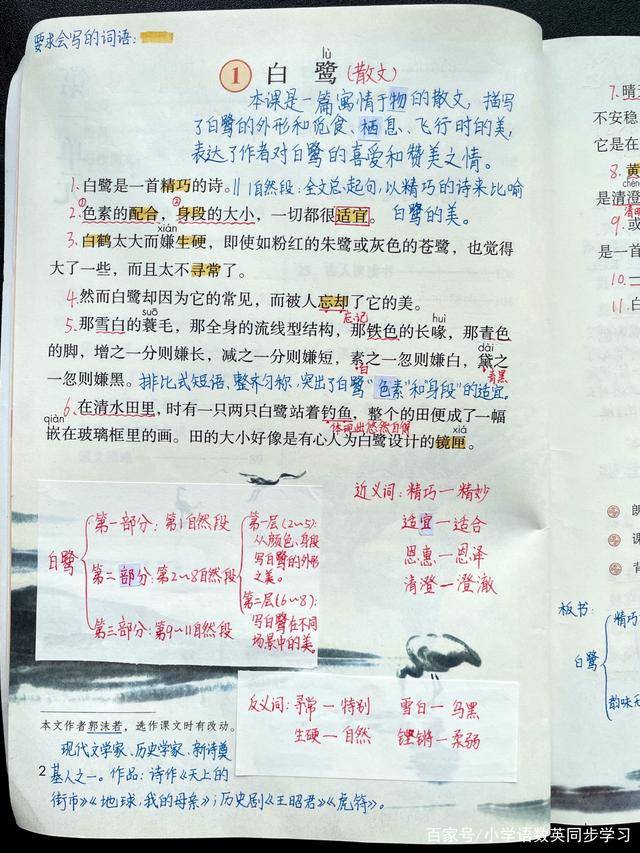 要求会写的词语:
lù
1 白鹭(散文)
本课是一篇寓情于物的散文,描写
了白鹭的外形和觅食、栖息、飞行时的美,
表达了作者对白鹭的喜爱和赞美之情。
1.白鹭是一首精巧的诗。‖1自然段:全文总起句,以精巧的诗来比喻
白鹭的美。
① ②
2.色素的配合,身段的大小,一切都很适宜。
xián
3.白鹤太大而嫌生硬,即使如粉红的朱鹭或灰色的苍鹭,也觉得
大了一些,而且太不寻常了。
4.然而白鹭却因为它的常见,而被人忘却了它的美。
忘记
suō huì
5.那雪白的蓑毛,那全身的流线型结构,那铁色的长喙,那青色
dài
的脚,增之一分则嫌长,减之一分则嫌短,素之一忽则嫌白,黛之
白 青黑
一忽则嫌黑。排比式短语,整齐匀称,突出了白鹭"色素"和"身段"的适宜。
6.在清水田里,时有一只两只白鹭站着钓鱼,整个的田便成了一幅
体现出悠然自得
qiàn xiá
嵌在玻璃框里的画。田的大小好像是有心人为白鹭设计的镜匣。
白鹭
第一部分:第1自然段
第二部分:第2~8自然段
第三部分:第9~11自然段
第一层(2~5):
从颜色、身段
写白鹭的外形
之美。
第二层(6~8):
写白鹭在不同
场景中的美。
近义词:精巧—精妙
适宜—适合
恩惠—恩泽
清澄—澄澈
反义词:寻常—特别 雪白—乌黑
生硬—自然 铿锵—柔弱
本文作者郭沫若,选作课文时有改动。
现代文学家、历史学家、新诗奠
基人之一。作品:诗作《天上的
街市》《地球,我的母亲》;历史剧《王昭君》《虎符》。
2
7.晴
不安稳
它是在
8.黄
chéng
是清澄
清
9.或
是一首
10.一
11.白
朗
课
背
板书:
精巧
白鹭
韵味无
百家号/小学语数英同步学习